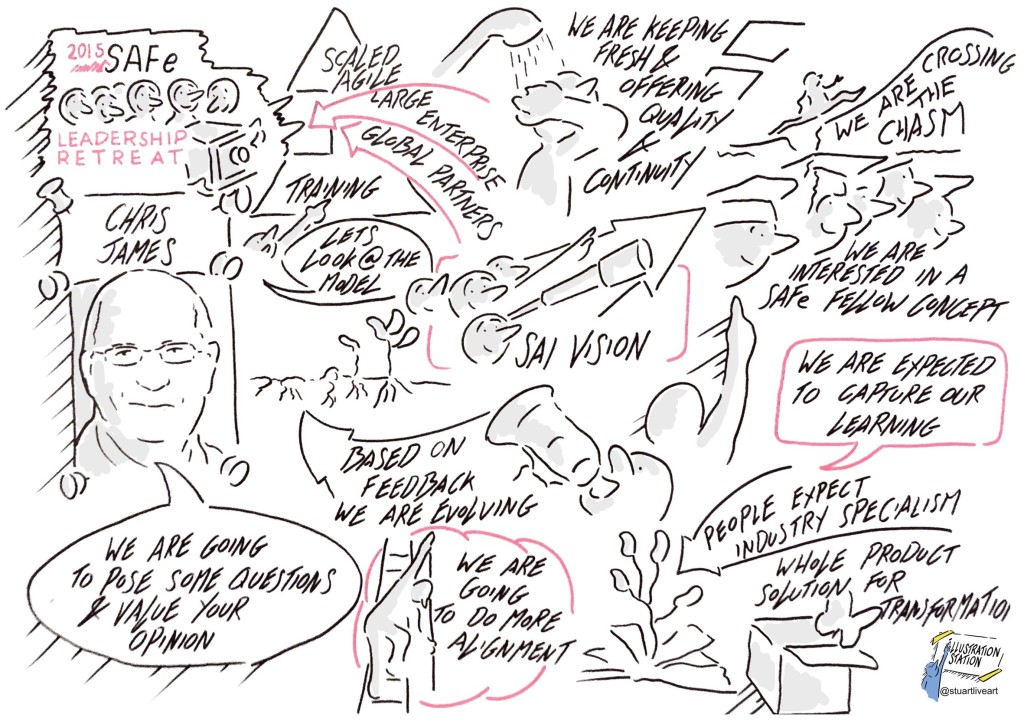 2015 SAFe
LEADERSHIP
RETREAT
CHRIS
JAMES
WE ARE GOING
TO POSE SOME QUESTIONS
& VALUE YOUR
OPINION
SCALED
AGILE
TRAINING
LARGE ENTERPRISE
GLOBAL PARTNERS
LETS
LOOK @ THE
MODEL
WE ARE KEEPING
FRESH &
OFFERING
QUALITY
&
CONTINUITY
CROSSING
WE ARE THE
CHASM
SAI VISION
WE ARE
INTERESTED IN A
SAFe FELLOW CONCEPT
WE ARE EXPECTED
TO CAPTURE OUR
LEARNING
BASED ON
FEEDBACK
WE ARE EVOLVING
WE ARE
GOING
TO DO MORE
ALIGNMENT
PEOPLE EXPECT
INDUSTRY SPECIALISM
WHOLE PRODUCT
SOLUTION FOR
TRANSFORMATION
ILLUSTRATION
STATION
@stuartliveart